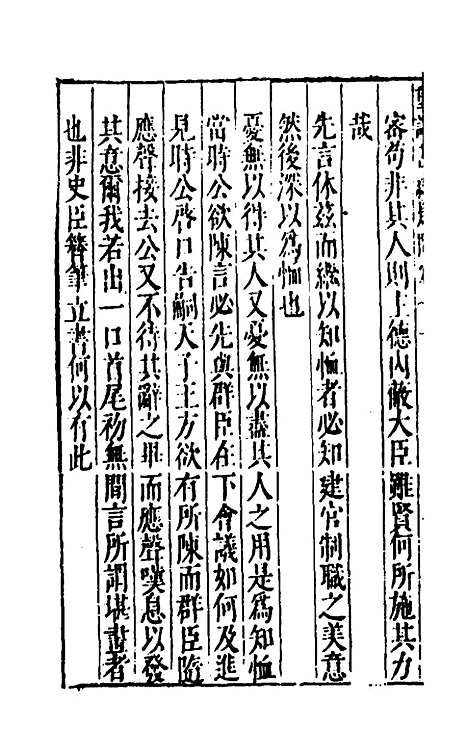 審苟非其人則上德內敝大臣雖賢何所施其力
哉
先言休茲而繼以知恤者必知建官制職之美意
然後深以為恤也
憂無以得其人又憂無以盡其人之用是為知恤
當時公欲陳言必先與群臣在下會議如何及進
見時公啓口告嗣天子王方欲有所陳而群臣隨
應聲接去公又不待其辭之畢而應聲嘆息以發
其意爾我若出一口首尾初無間言所謂堪畫者
也非史臣簪筆立書何以有此